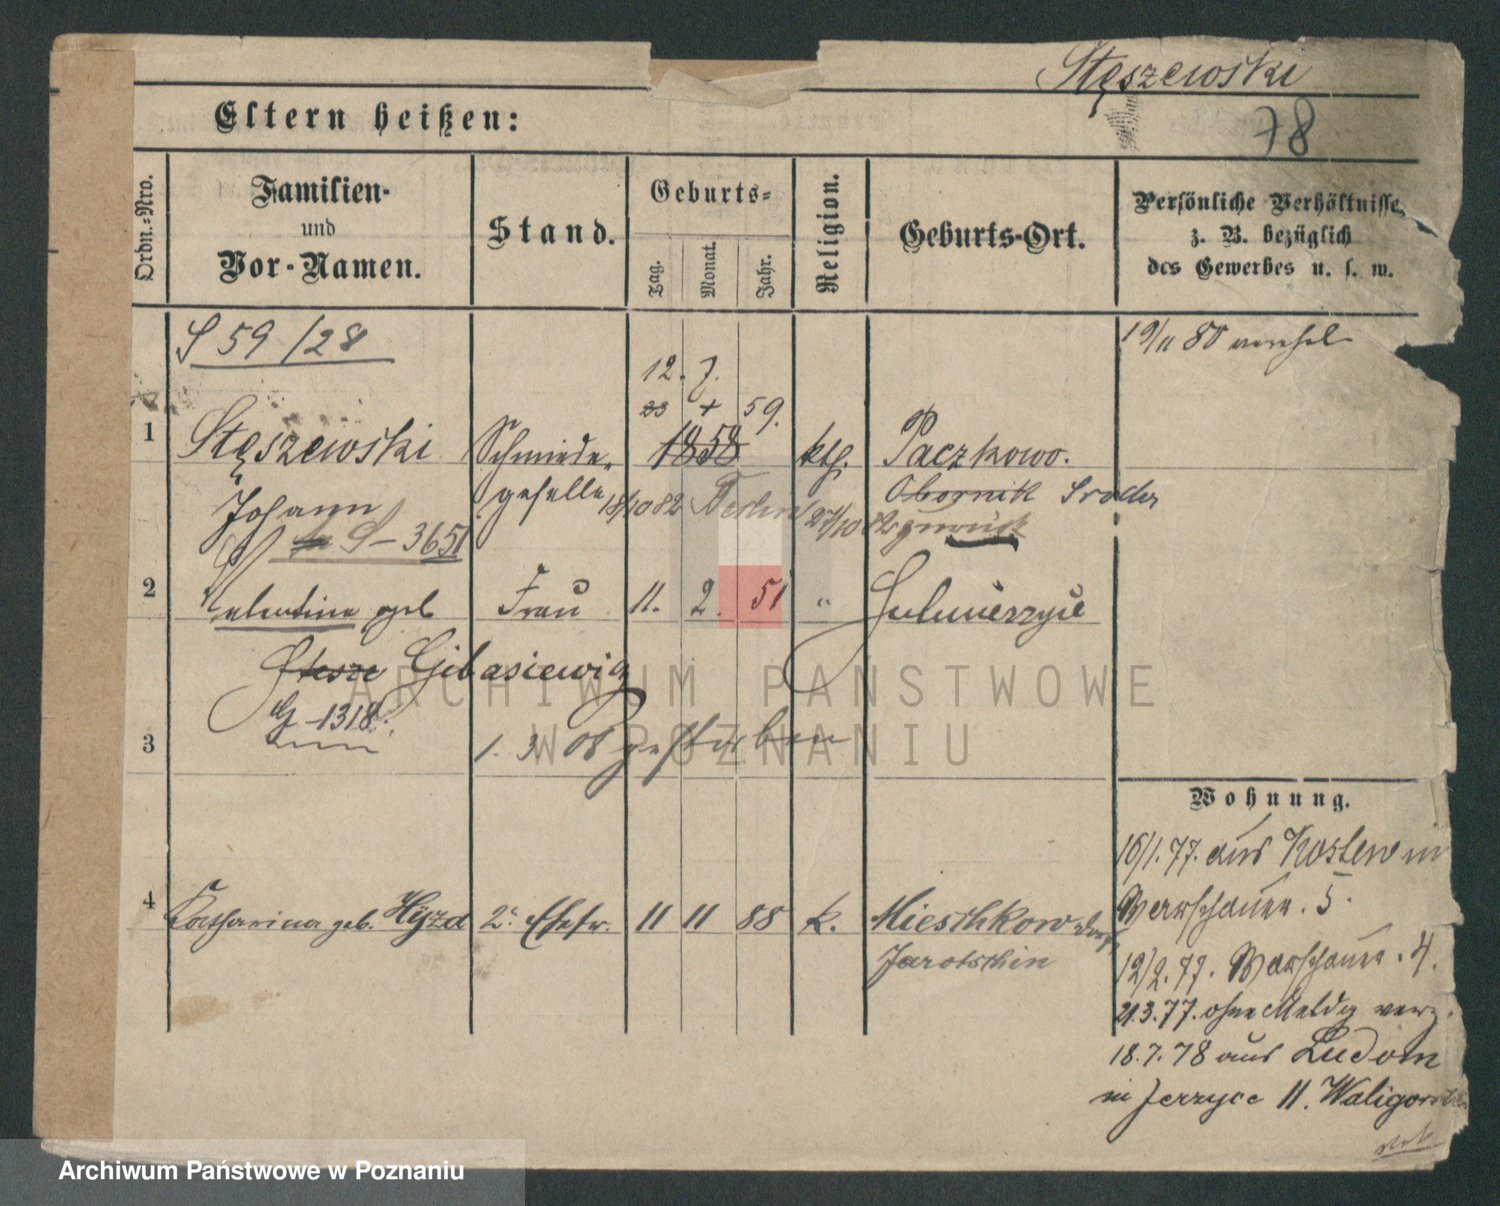 Stęszewski
78
Eltern heißen:
Ordn.-Nro.
Familien-
und
Vor-Namen.
Stand.
Geburts-
Tag.
Monat.
Jahr.
Religion.
Geburts-Ort.
Persönliche Verhältnisse,
z. B. bezüglich
des Gewerbes u. s. w.
S 59/28
19/11 80 verehel
12. 7.
23 + 59.
1
Stęszewski
Schmiede-
1858
kth.
Paczkowo.
Johann
geselle
18/10 82 Berlin 27/10 82 zurück
Obornik Sroder
S-3651
2
Valentine geb
Frau
11. 2. 51
"
Stesze Gibasiewicz
G-1318.
3
1. 3 08 gestorben
ARCHIWUM PAŃSTWOWE
W POZNANIU
Wohnung.
16/1.77. aus Kosten in
Warschauer. 5.
4
Katharina geb. Hyzd
2. Ehefr.
11 11 88
k.
Mieschkow
Jarotschin
12/2.77. Warschauer. 4.
21.3.77. ohne Meldg verz.
18.7.78 aus Ludom
in Jerzyce 11. Waligorski
Archiwum Państwowe w Poznaniu